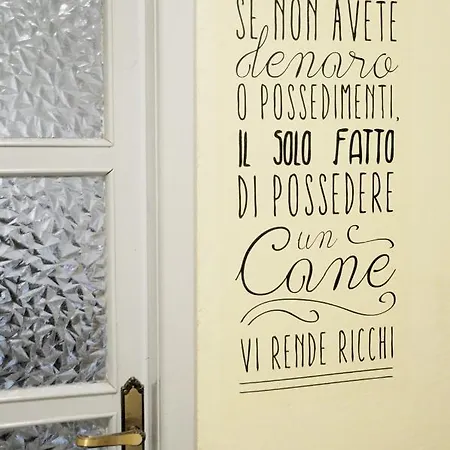 SE NON AVETE
denaro
O POSSEDIMENTI,
IL SOLO FATTO
DI POSSEDERE
un
Cane
VI RENDE RICCHI